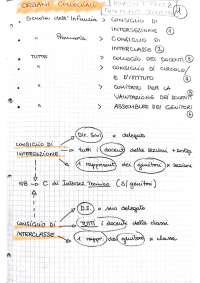 ORGANI COLLEGIALI
- Scuola dell'Infanzia → CONSIGLIO DI INTERSEZIONE ①
- " Primaria → CONSIGLIO DI INTERCLASSE ②
- TUTTE → COLLEGIO DEI DOCENTI ③
- " → CONSIGLIO DI CIRCOLO E D'ISTITUTO ④
- " → COMITATO PER LA VALUTAZIONE DEI DOCENTI
- " → ASSEMBLEE DEI GENITORI
CONSIGLIO DI INTERSEZIONE
Dir. Sco. o delegato
tutti i docenti delle sezioni
1 rappresent. dei genitori x sezione
NB → C. di Interse Tecnico (8 genitori)
CONSIGLIO DI INTERCLASSE
D.S. o suo delegato
TUTTI i docenti delle classi
1 rappr. dei genitori x classe